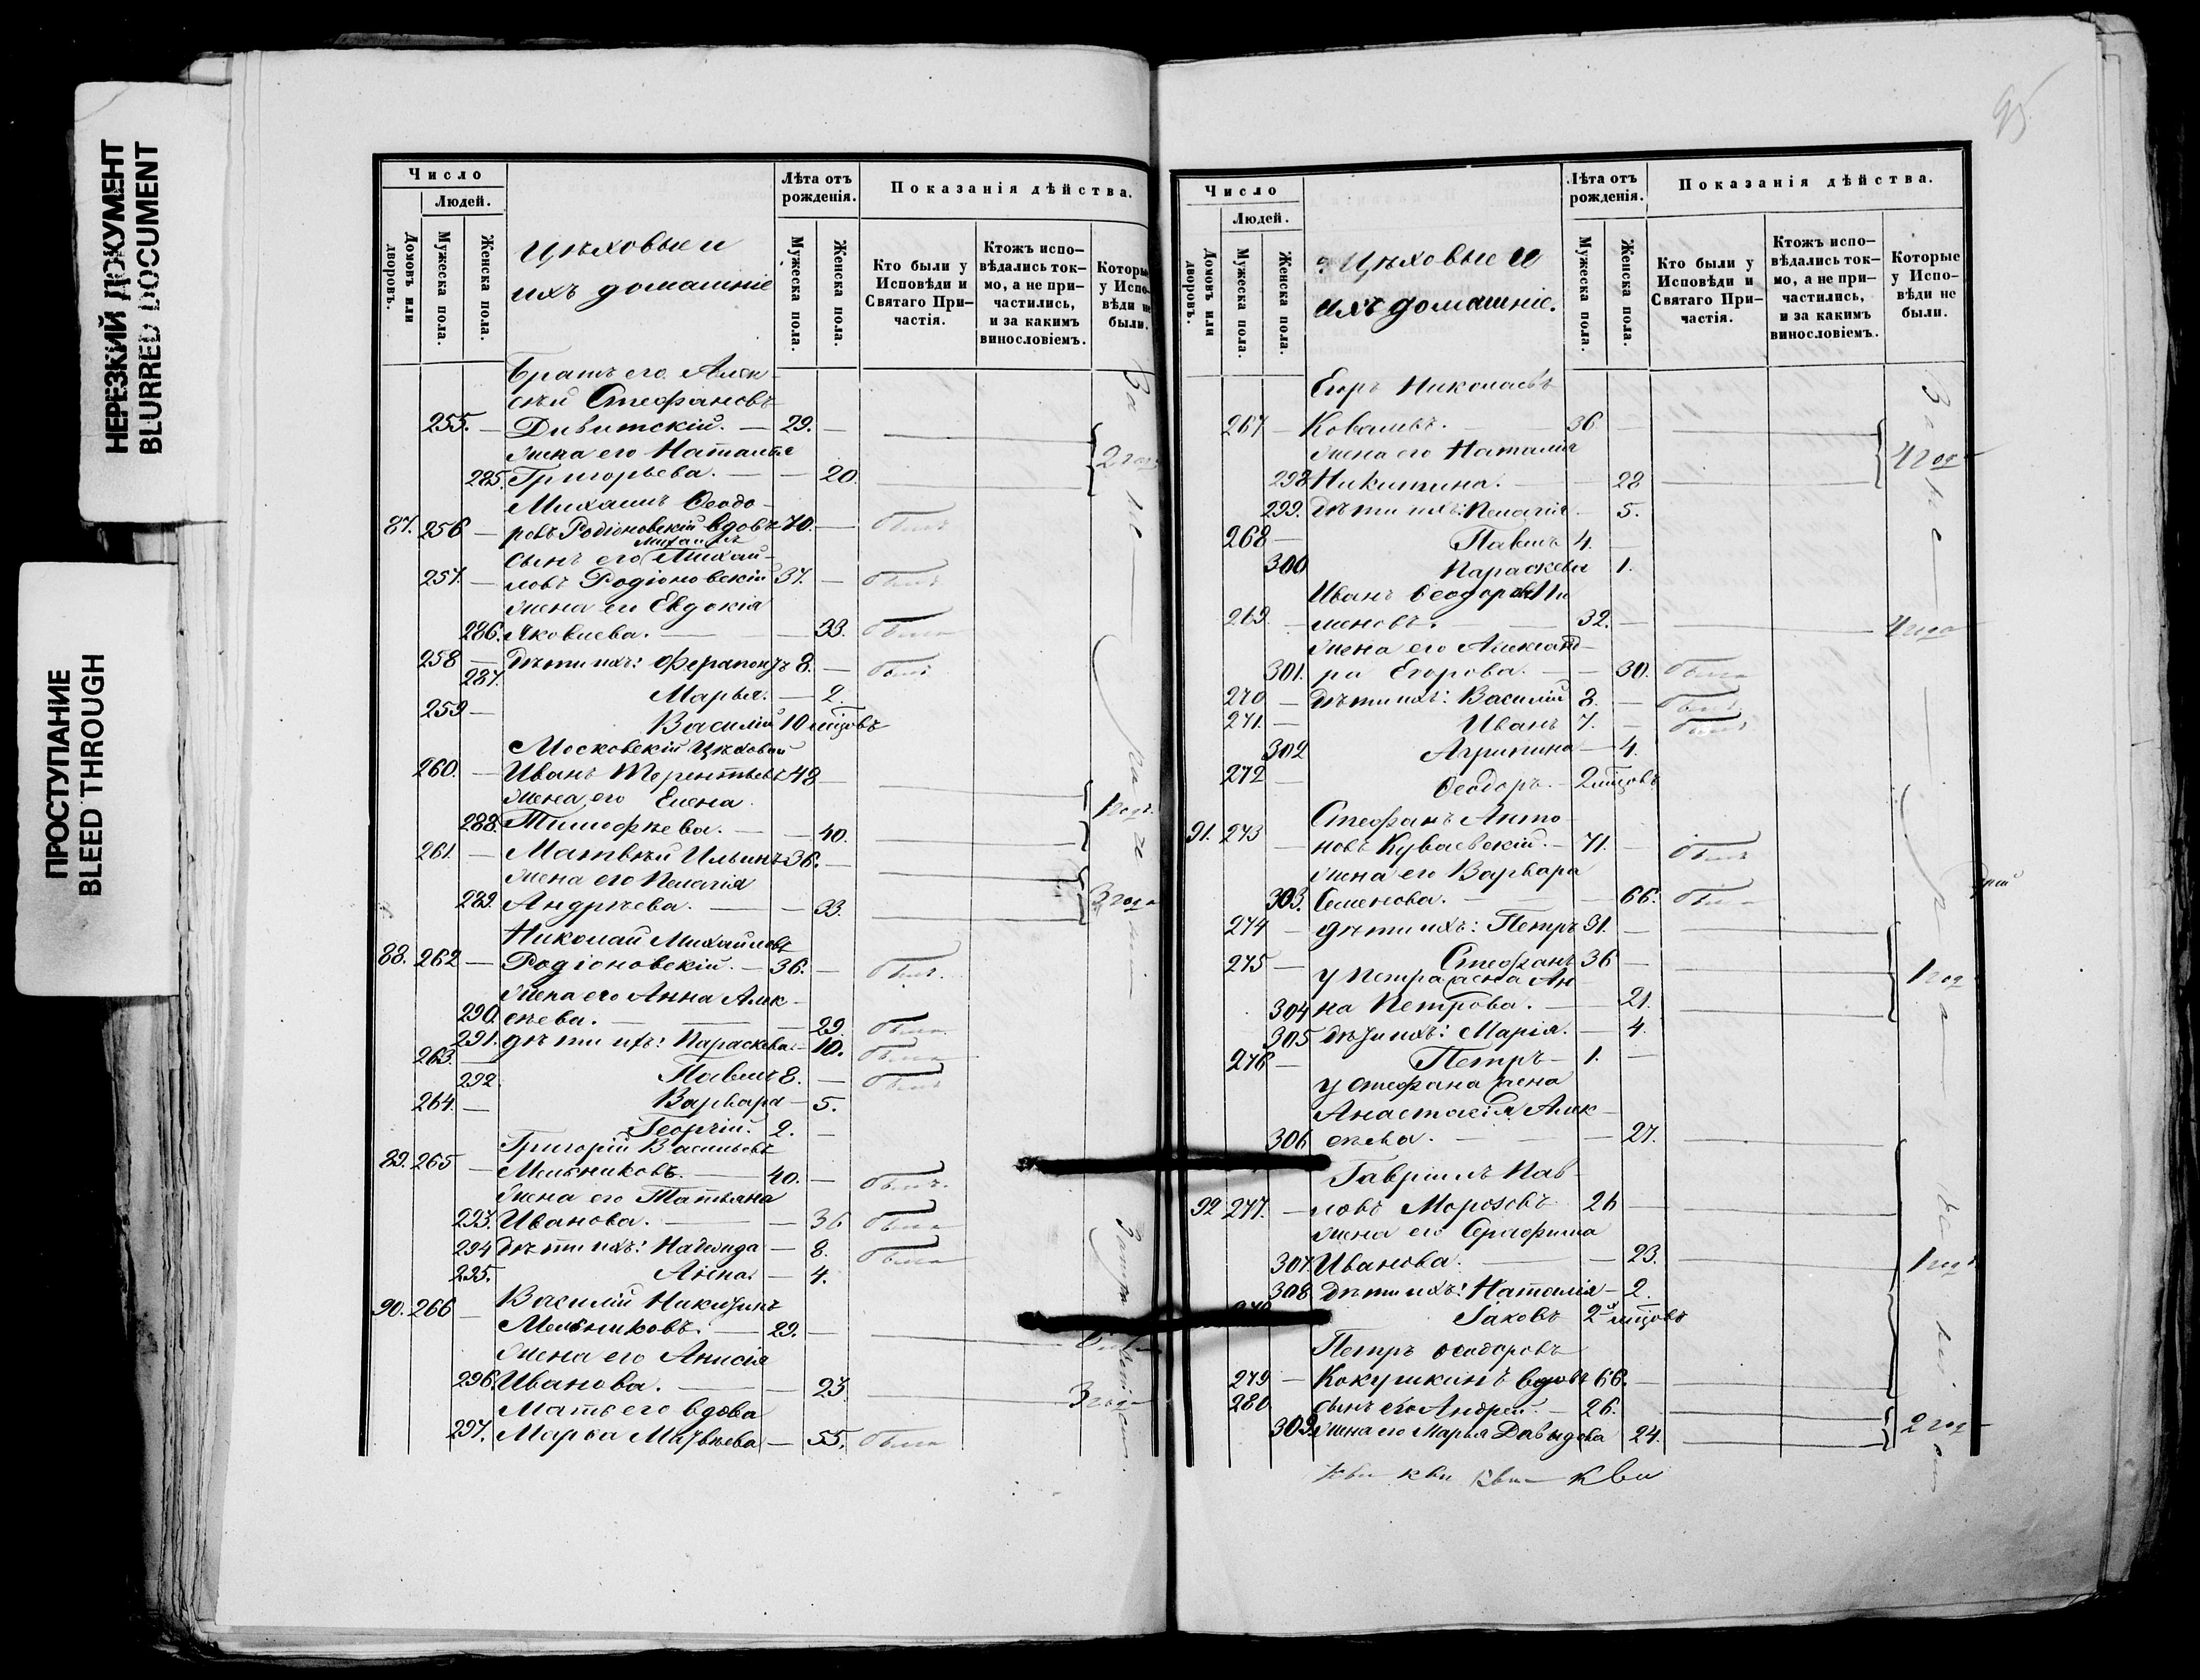 НЕРЕЗКИЙ ДОКУМЕНТ
BLURRED DOCUMENT
ПРОСТУПАНИЕ
BLEED THROUGH
Число
Людей.
Домовъ или дворовъ.
Мужеска пола.
Женска пола.
Цѣховые и
ихъ домашніе
Лѣта отъ рожденія.
Мужеска пола.
Женска пола.
Показанія дѣйства.
Кто были у Исповѣди и Святаго Причастія.
Ктожъ исповѣдались токмо, а не причастились, и за какимъ винословіемъ.
Которые у Исповѣди не были.
Братъ его Алек-
сѣй Стефановъ
255. — 29. —
жена его Наталья
285. Григорьева. — — 20. 2 года
Михаилъ Ѳеодо-
87. 256 — ровъ Родіоновскій вдовъ 70. — былъ
Михаилъ
сынъ его Михай-
257. — ловъ Родіоновскій 37. — былъ
жена его Евдокія
286. Яковлева. — — 33. была
258 — дѣти ихъ: Ферапонтъ 8. — былъ
287. Марья. — 2.
259 — Василій 10 мѣсцовъ
Московскій Цѣховой
260. — Иванъ Терентьевъ 48 —
жена его Елена
288. Тимофѣева. — — 40. 1 годъ.
261. — Матвѣй Ильинъ 36. —
жена его Пелагія
289. Андрѣева. — — 33. 3 года
Николай Михайловъ
88. 262 — Родіоновскій. — 36. — былъ.
жена его Анна Алек-
290. сѣева. — — 29. была
291. дѣти ихъ: Параскева. — 10. была
263. — Павелъ 8. — былъ
292. Варвара — 5.
264. — Георгій. 2. —
Григорій Васильевъ
89. 265 — Мельниковъ. — 40. — былъ.
жена его Татьяна
293. Иванова. — — 36 была
294 дѣти ихъ: Надежда — 8. была
295. Анна. — 4.
90. 266 — Василій Никитинъ
Мельниковъ. — 29. —
жена его Анисія
296. Иванова. — — 23. 3 года
Мать его вдова
297. Марѳа Матвѣева — 55. была
95
Число
Людей.
Домовъ или дворовъ.
Мужеска пола.
Женска пола.
Цѣховые и
ихъ домашніе.
Лѣта отъ рожденія.
Мужеска пола.
Женска пола.
Показанія дѣйства.
Кто были у Исповѣди и Святаго Причастія.
Ктожъ исповѣдались токмо, а не причастились, и за какимъ винословіемъ.
Которые у Исповѣди не были.
Егоръ Николаевъ
267 — Ковалевъ. 36 —
жена его Наталія
298. Никитина. — — 28 4 года
299. дѣти ихъ: Пелагія — 5.
268 — Павелъ 4. —
300 Параскева 1.
Иванъ Ѳеодоровъ
269 — 32. — 4 года
жена его Александ-
301. ра Егорова. — — 30. была
270 — дѣти ихъ: Василій 8. — былъ.
271. — Иванъ 7. — былъ
302 Агрипина — 4.
272 — Ѳеодоръ. — 2 мѣсцовъ
Стефанъ Анто-
91. 273 — новъ Куваевскій. — 71. — былъ
жена его Варвара
303. Семенова. — — 66. была
274 — дѣти ихъ: Петръ 31. —
275 — Стефанъ 36 — 1 годъ
у Петра жена Ан-
304 на Петрова. — — 21.
305 дѣти ихъ: Марія. — 4.
276 — Петръ — 1. —
у Стефана жена
Анастасія Алек-
306 сѣева. — — 27.
Гавріилъ Пав-
92 277. — ловъ Морозовъ 26 —
жена его Серафима
307. Иванова. — — 23. 1 годъ
308 дѣти ихъ: Наталія — 2.
Іаковъ 2 мѣсцовъ
Петръ Ѳеодоровъ
279 — Кокушкинъ вдовъ 66. —
280 сынъ его Андрей. — 26.
309. жена его Марья Давыдова 24. 2 года